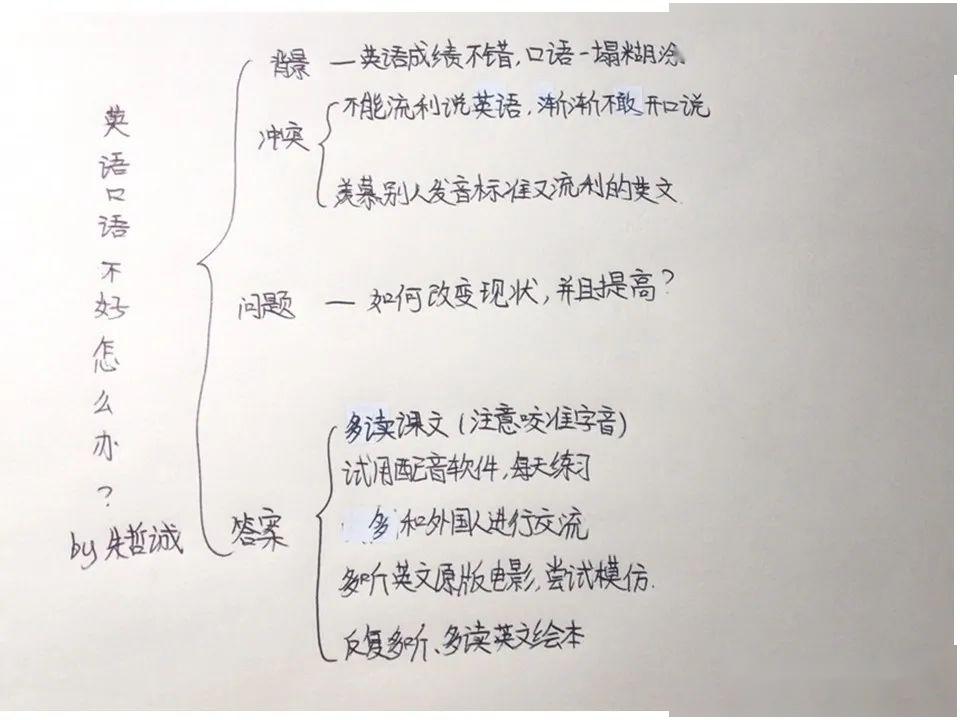 英语口语不好怎么办？
by 朱哲诚
背景 — 英语成绩不错，口语一塌糊涂
冲突
不能流利说英语，渐渐不敢开口说
羡慕别人发音标准又流利的英文
问题 — 如何改变现状，并且提高？
答案
多读课文（注意咬准字音）
试用配音软件，每天练习
多和外国人进行交流
多听英文原版电影，尝试模仿.
反复多听、多读英文绘本